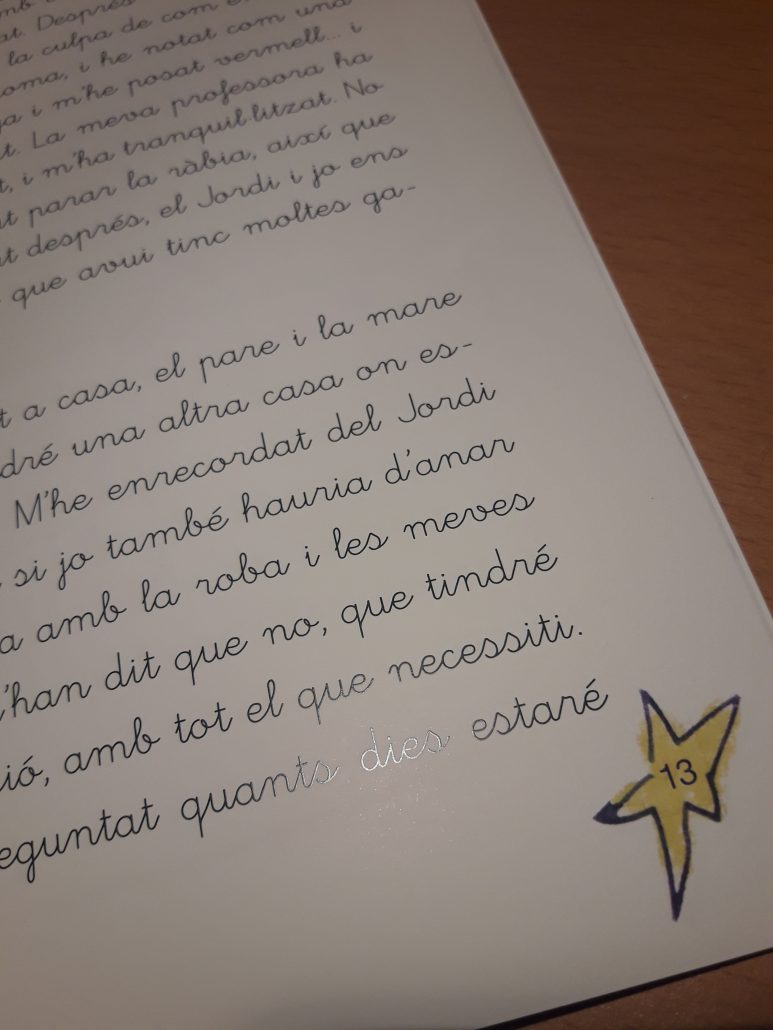 Després
la culpa de com
i he notat com una
i m'he posat vermell... i
La meva professora ha
i m'ha tranquil·litzat. No
parar la ràbia, així que
després, el Jordi i jo ens
que avui tinc moltes ga-
a casa, el pare i la mare
una altra casa on es-
M'he enrecordat del Jordi
si jo també hauria d'anar
amb la roba i les meves
dit que no, que tindré
amb tot el que necessiti.
quants dies estaré
13